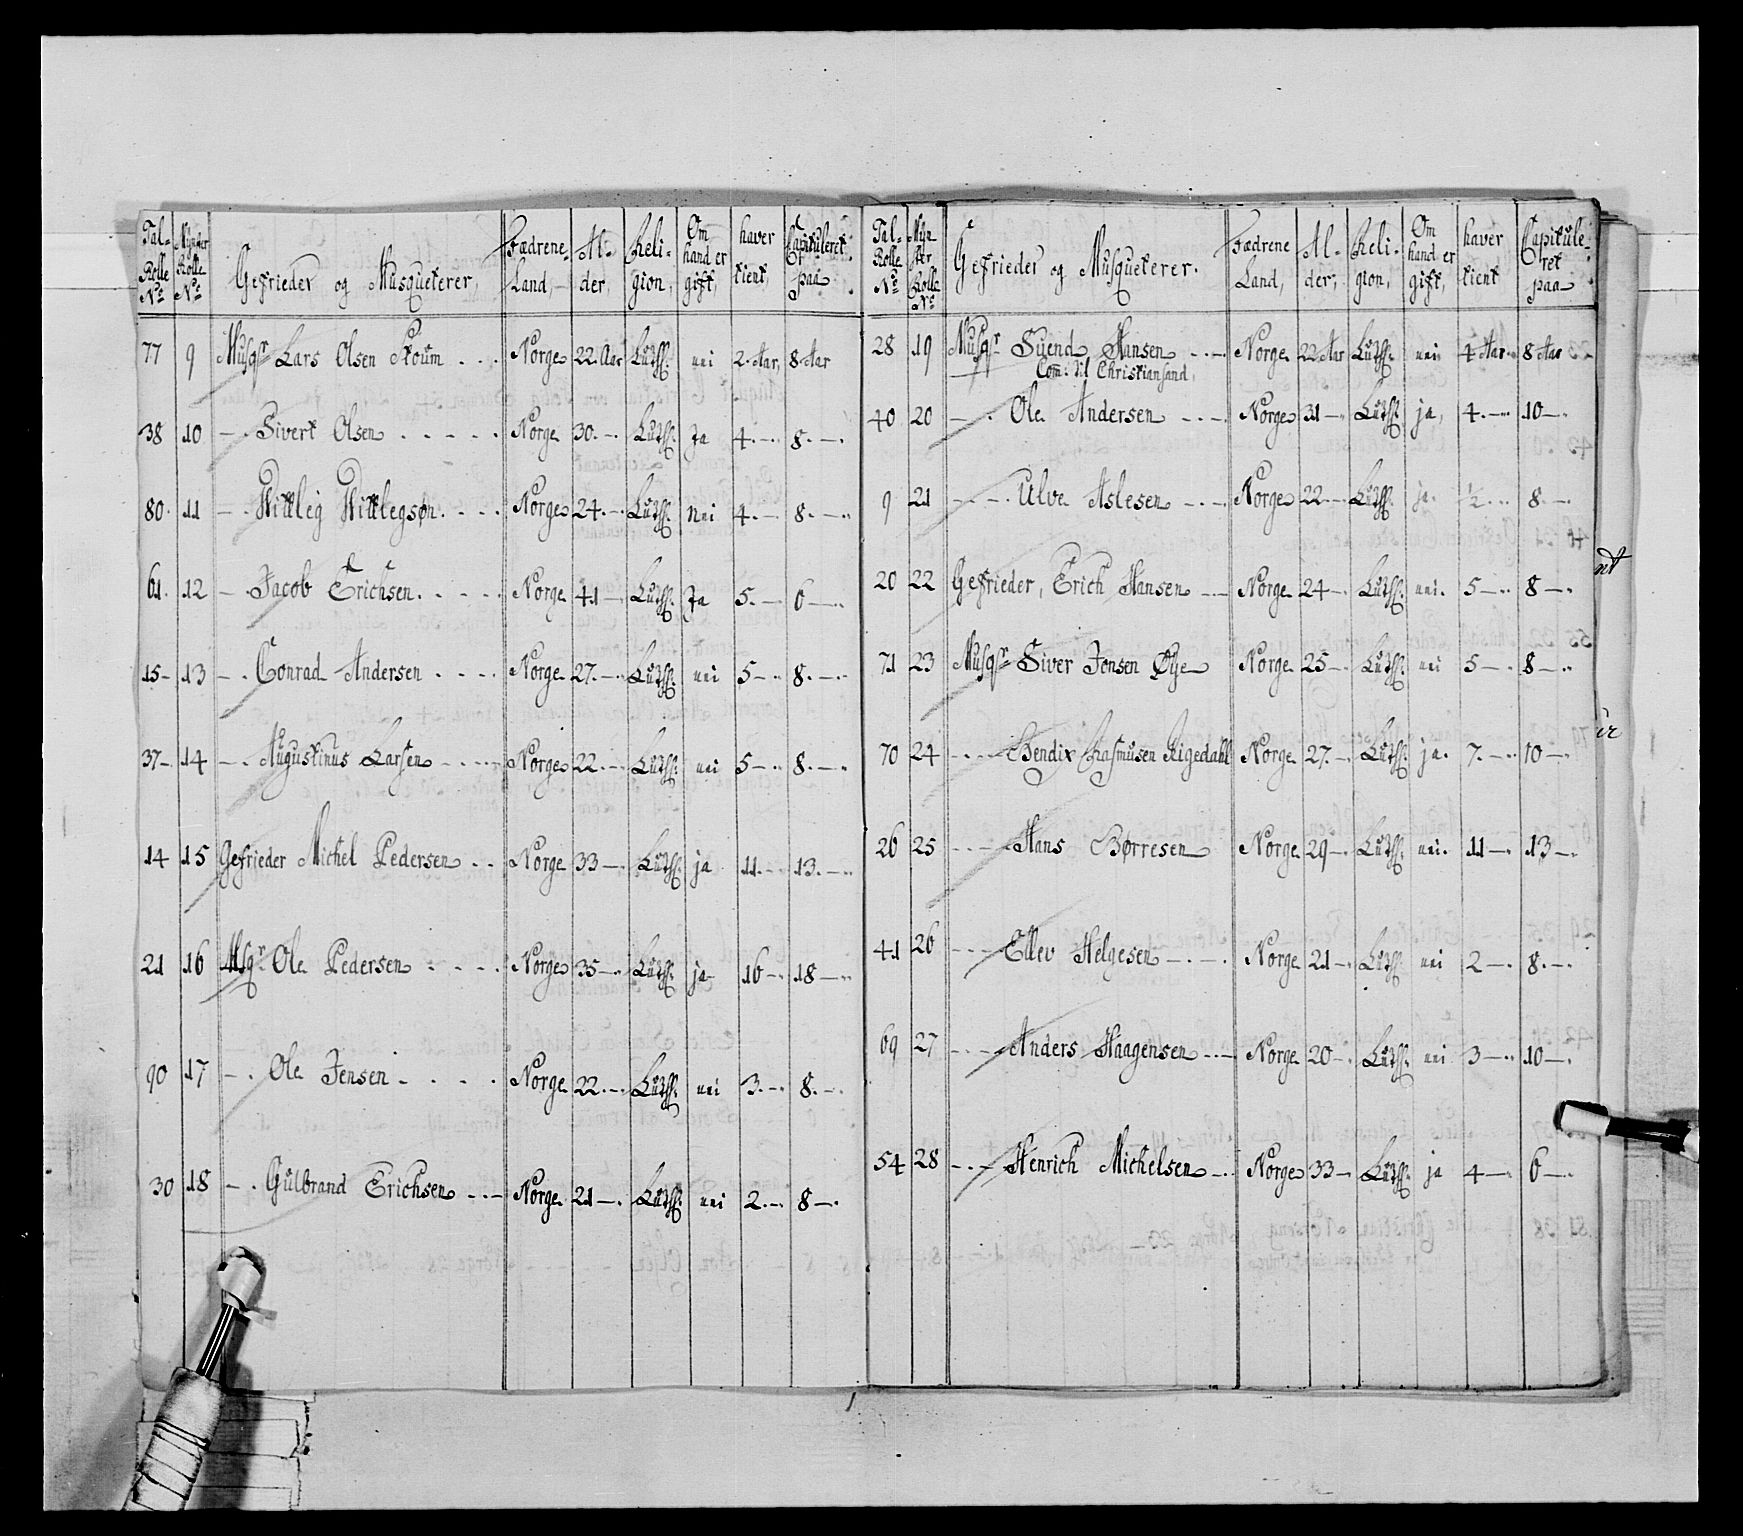 Tal-Rolle No | Mynster Rolle No | Gefrieder og Musqueterer, | Fædrene-Land, | Al-der, | Reli-gion, | Om hand er gift, | haver tient, | Capituleret paa
77 9 Musqr Lars Olsen Skoum . . . Norge 22 Aar Luthr. nei 2 Aar, 8 Aar
38 10 — . Sivert Olsen . . . . . Norge 30 — . Luthr. Ja 4 — . 8 — .
80 11 — . Wittleg Wittlegsøn . . . Norge 24 — . Luthr. Nei 4 — . 8 — .
61 12 — . Jacob Erichsen . . . . Norge 41 — . Luthr. Ja 5 — . 6 — .
15 13 — . Conrad Andersen . . . . Norge 27 — . Luthr. nei 5 — . 8 — .
37 14 — . Augustinus Larsen . . . Norge 22 — . Luthr. nei 5 — . 8 — .
14 15 Gefrieder Michel Pedersen . . Norge 33 — . Luthr. ja 11 — . 13 — .
21 16 Msqr Ole Pedersen . . . . Norge 35 — . Luthr. ja 16 — . 18 — .
90 17 — . Ole Jensen . . . . Norge 22 — . Luthr. nei 3 — . 8 — .
30 18 — . Gulbrand Erichsen . . . Norge 21 — . Luthr. nei 2 — . 8 — .
Tal-Rolle No | Myn-ster Rolle No | Gefrieder og Musqueterer. | Fædrene Land, | Al-der, | Reli-gion, | Om hand er gift, | haver tient | Capitule-ret paa
28 19 Musqr Suend Hansen . . . Norge 22 Aar Luthr. nei 4 Aar 8 Aar
Com: til Christiansand,
40 20 — . Ole Andersen . . . Norge 31 — . Luthr. ja, 4 — . 10 — .
9 21 — . Ulve Aslesen . . . Norge 22 — . Luthr. ja. ½ — . 8 — .
20 22 Gefrieder, Erich Hansen . . Norge 24 — . Luthr. nei. 5 — . 8 — .
71 23 Musqr Siver Jensen Øye Norge 25 — . Luthr. nei 5 — . 8 — .
70 24 — . Bendix Rasmusen Rigedahl Norge 27 — . Luthr. ja. 7 — . 10 — .
26 25 — . Hans Børresen Norge 29 — . Luthr. nei. 11 — . 13 — .
41 26 — . Ellev Helgesen . . . Norge 21 — . Luthr. nei 2 — . 8 — .
69 27 — . Anders Haagensen . . . Norge 20 — . Luthr. nei 3 — . 10 — .
54 28 — . Henrich Michelsen . . Norge 33 — . Luthr. ja 4 — . 6 — .